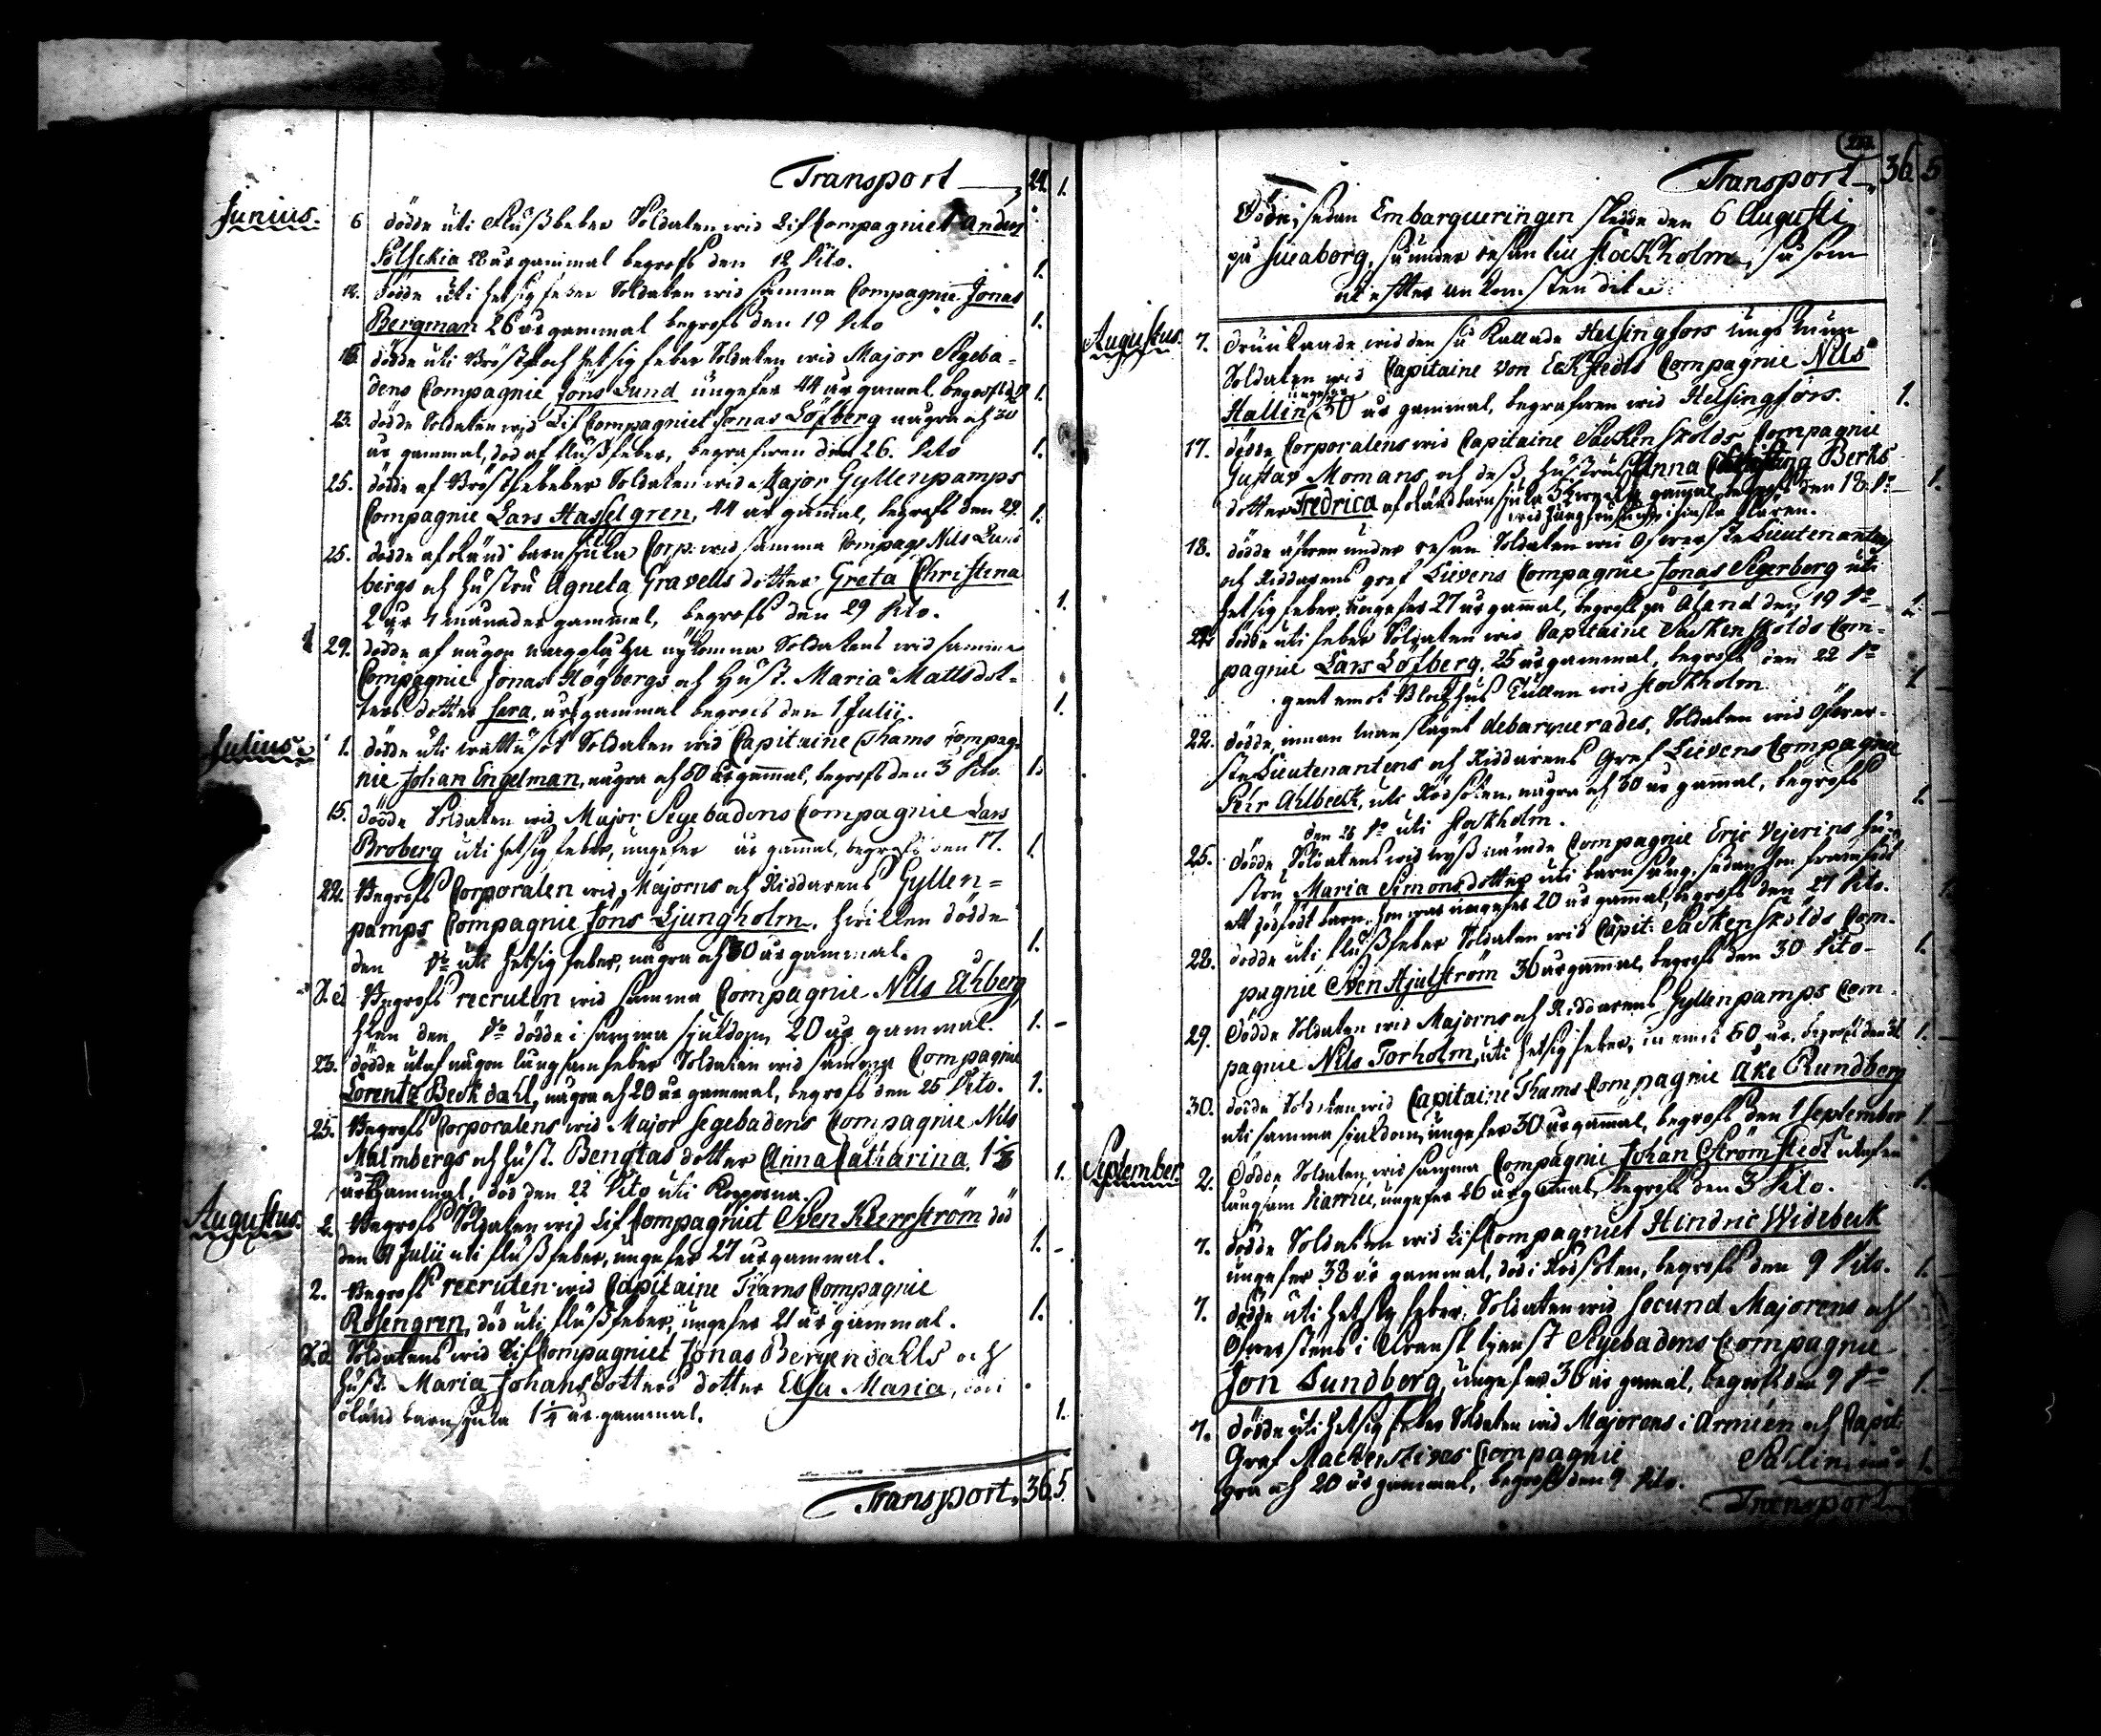 Transport 24. 1.
Junius. 6 dödde uti Flußfeber Soldaten wid LifCompagniet Anders
Polschia 28 år gammal begrofs den 12 Dito. 1.
12. dödde uti hetsig feber Soldaten wid samma Compagnie Jonas
Bergman 26 år gammal begrofs den 19 Dito 1.
dödde uti Bröst och hetsig feber Soldaten wid Major Segeba-
dens Compagnie Jöns Lund ungefer 44 år gamal, begrofs d. 1.
23. dödde Soldaten wid LifCompagniet Jonas Löfberg några och 30
år gammal, död af flußfeber, begrafwen den 26. Dito 1.
25. dödde af Bröstfeber Soldaten wid Major Gyllenpamps
Compagnie Lars Hasselgren, 44 år gamal, begrofs den 29. 1.
25. dödde af okänd barnsjuka Corp. wid samma Compag: Nils Lund
bergs och hustru Agneta Gravells dotter Greta Christina
2 år 4 månader gammal, begrofs den 29 Dito. 1.
29. dödde af någon Soldatens wid samma
Compagnie Jonas Högbergs och Hust. Maria Mattsdot-
ters dotter Sara, gammal begrofs den 1 Julii. 1.
Julius. 1. dödde uti wattusot Soldaten wid Capitaine Thams Compag-
nie Johan Engelman, några och 50 år gamal, begrofs den 3 Dito. 1.
15. dödde Soldaten wid Major Segebadens Compagnie Lars
Broberg uti hetsig feber, ungefer år gamal, begrofs den 17. 1.
22. Begrofs Corporalen wid Majorns och Riddarens Gyllen=
pamps Compagnie Jöns Ljungholm, hwilken dödde
den do uti hetsig feber, några och 30 år gammal. 1.
D. d. Begrofs recruten wid samma Compagnie Nils Ahlberg
den do dödde i samma sjukdom, 20 år gammal. 1. -
23. dödde utaf någon långsam feber Soldaten wid samma Compagnie
Lorentz Beckdahl, några och 20 år gammal, begrofs den 25 Dito. 1.
25. Begrofs Corporalens wid Major Segebadens Compagnie Nils
Malmbergs och Hust. Bengtas dotter Anna Catharina, 1
år gammal, död den 22 Dito uti Kopporna. 1.
Augustus. 2. Begrofs Soldaten wid LifCompagniet Sven Kjerrström död
den Julii uti flußfeber, ungefer 27 år gammal. 1. -
2. Begrofs recruten wid Capitaine Thams Compagnie
Rosengren, död uti flußfeber, ungefer 21 år gammal. 1.
D. d. Soldatens wid LifCompagniet Jonas Bergendahls och
Hust. Maria Johansdotters dotter Elsa Maria, död i
okänd barnsjuka 1 1/4 år gammal. 1.
Transport, 36. 5.
Transport, 36. 5
Döde, sedan Embarqueringen skedde den 6 Augusti
på Sueaborg, så under resan til Stockholm, så som
ock efter ankomsten dit.
Augustus. 7. Drunknade wid den så kallade Helsingfors
Soldaten wid Capitaine von Eckstedts Compagnie Nils
Hallin ungefer 30 år gammal, begrafwen wid Helsingfors. 1.
17. dödde Corporalens wid Capitaine Sackenskölds Compagnie
Gustav Momans och deß hustrus Anna Christina Berks
dotter Fredrica af okänd barnsjuka gammal begrofs den 18. do 1.
wid i Skären.
18. dödde äfwen under resan Soldaten wid Öfwerste Lieutenantens
och Riddarens Gref Lievens Compagnie Jonas Segerberg uti
hetsig feber, ungefer 27 år gamal, begrofs på Åland den 19 do 1. -
dödde uti feber Soldaten wid Capitaine Sackenskölds Com-
pagnie Lars Löfberg, 25 år gammal, begrofs den 22 do 1 -
gent emot Blockhus Tullen wid Stockholm.
22. dödde, innan manskapet debarquerades, Soldaten wid Öfwer-
ste Lieutenantens och Riddarens Gref Lievens Compagnie
Pehr Ahlbeck, uti Rödsoten, några och 30 år gamal, begrofs 1. -
den 26 do uti Stockholm.
25. dödde Soldatens wid nyß nämde Compagnie Eric Vejerins hu-
stru Maria Simonsdotter uti barnsäng, sedan hon framfödt
ett dödfödt barn, hon war ungefer 20 år gamal, begrofs den 27 Dito. 1.
28. dödde uti flußfeber Soldaten wid Capit: Sackenskölds Com-
pagnie Sven Hjulström 36 år gamal, begrofs den 30 Dito - 1.
29. dödde Soldaten wid Majorns och Riddarens Gyllenpamps Com-
pagnie Nils Torholm, uti hetsig feber, inemot 50 år, begrofs den 31. 1. -
30. dödde Soldaten wid Capitaine Thams Compagnie Åke Rundberg
uti samma sjukdom, ungefer 30 år gamal, begrofs den 1 September 1 -
September. 2. dödde Soldaten wid samma Compagnie Johan Strömstedt utaf en
långsam ungefer 26 år gamal, begrofs den 3 Dito. 1.
7. dödde Soldaten wid LifCompagniet Hindric Widebeck
ungefer 38 år gammal, död i Rödsoten, begrofs den 9 Dito. 1. -
7. dödde uti hetsig feber, Soldaten wid Secund Majorens och
Öfwerstens i Fransk tjenst Segebadens Compagnie
Jon Sundberg, ungefer 36 år gamal, begrofs den 9 do 1. -
7. dödde uti hetsig feber Soldaten wid Majorens i Arméen och Capit:
Gref Compagnie Sahlin, nå- 1.
gra och 20 år gammal, begrofs den 9 Dito.
Transport